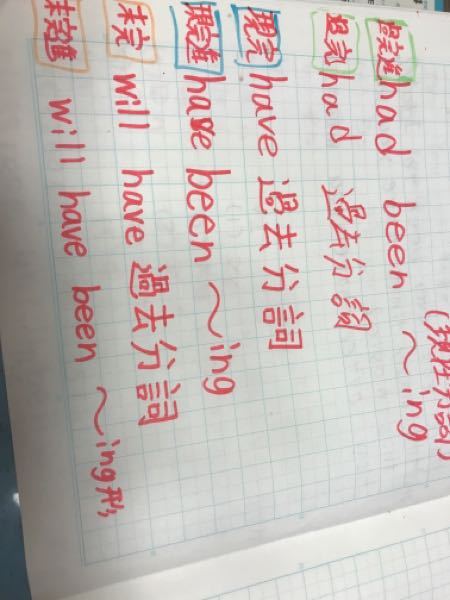 (現在分詞)
過完進 had been ～ing
過完 had 過去分詞
現完 have 過去分詞
現完進 have been ～ing
未完 will have 過去分詞
未完進 will have been ～ing形